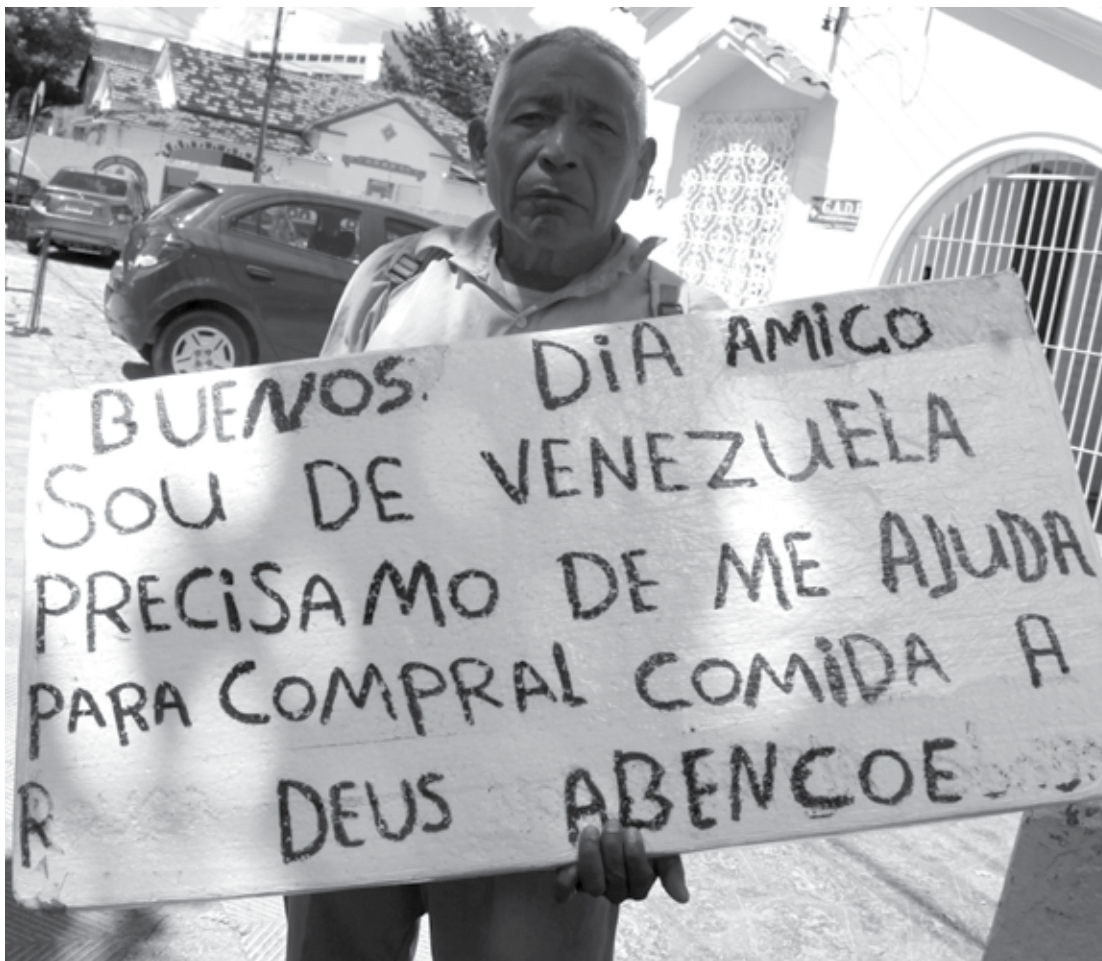 BUENOS. DiA AMiGO
SOU DE VENEZUELA
PRECiSAMO DE ME AJUDA
PARA COMPRAL COMiDA A
R DEUS ABENCOE
C.A.D.F